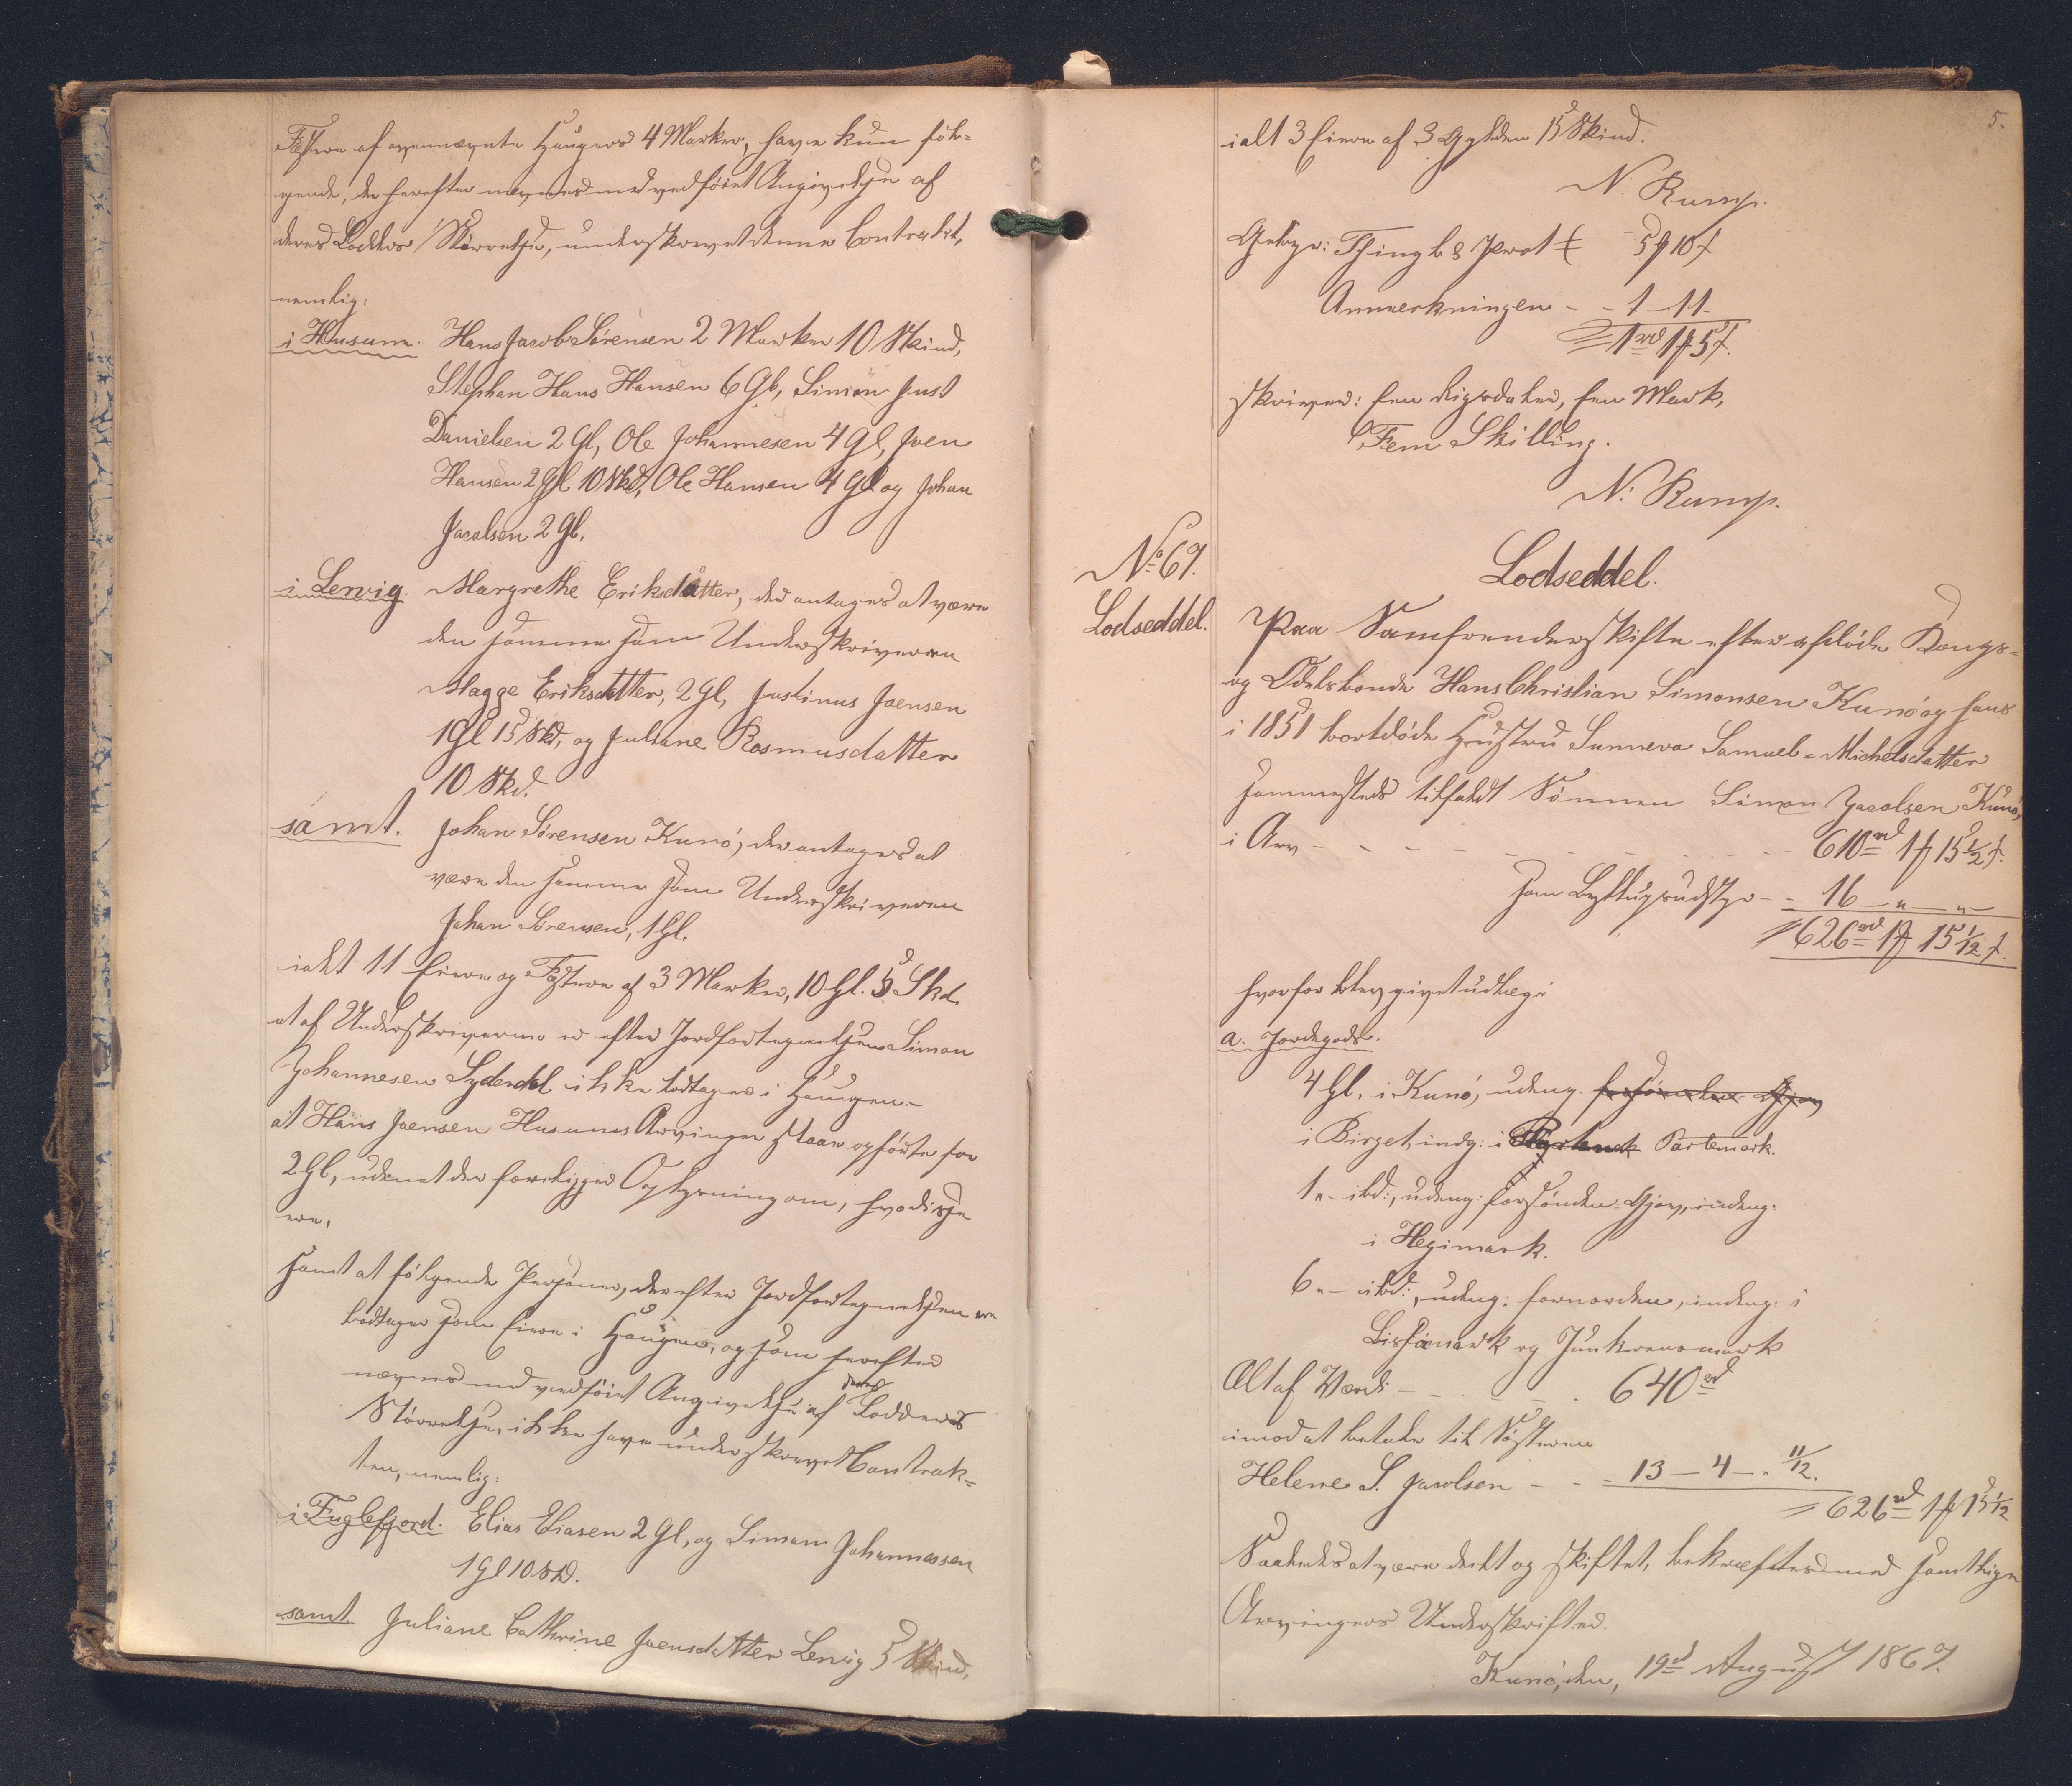 Fæstere af ovennævnte Haugers 4 Marker, have kun føl-
gende, der herefter nævnes med vedføiet Angivelse af
deres Lodders Størrelse, underskrevet denne Contrakt,
nemlig:
i Husum. Hans Jacob Sørensen 2 Marker 10 Skind,
Stephan Hans Hansen 6 Gl, Simon Just
Danielsen 2 Gl, Ole Johannesen 4 Gl, Joen
Hansen 2 Gl 10 Skd, Ole Hansen 4 Gl og Johan
Jacobsen 2 Gl.
i Lervig. Margrethe Eriksdatter, der antages at være
den samme som Underskriveren
Magge Eriksdatter, 2 Gl, Justinus Joensen
1 Gl 15 Skd, og Juliane Rasmusdatter
10 Skd.
samt. Johan Sørensen Kunø, der antages at
være den samme som Underskriveren
Johan Sørensen, 1 Gl.
ialt 11 Eiere og Fæstere af 3 Marker, 10 Gl. 5 Skd.
at af Underskriverne er efter Jordfortegnelsen Simon
Johannesen Syderdal ikke lodtager i Haugen.
at Hans Joensen Husums Arvinger staar opførte for
2 Gl, uden at der foreligger Oplysning om, hvo disse
ere,
samt at følgende Personer, der efter Jordfortegnelsen ere
lodtager som Eiere i Haugen, og som herefter
nævnes med vedføiet Angivelse af deres Lodders
Størrelse, ikke have underskrevet Contrak-
ten, nemlig:
i Fuglefjord. Elias Eliasen 2 Gl, og Simon Johannessen
1 Gl 10 Skd.
samt Juliane Cathrine Joensdatter Lervig 5 Skind,
5.
ialt 3 Eiere af 3 Gylden 15 Skind.
N. Rump.
Gebyr: Thingl & Prot 5 10
Anmerkningen - - 1 - 11
1 rd 1 5
skriver: Een Rigsdaler, Een Mark,
Fem Skilling.
N. Rump.
No 67.
Lodseddel.
Lodseddel.
Paa Samfrændeskifte efter afdøde Kongs-
og Odelsbonde Hans Christian Simonsen Kunø og hans
i 1851 bortdøde Hustru Sunneva Samuel-Michelsdatter
sammesteds tilfaldt Sønnen Simon Jacobsen Kunø,
i Arv - - - - - 610 rd 1 15 1/2
som Bryllupsudstyr - - 16 - " - " -
626 rd 1 15 1/12
hvorfor blev givet udlæg i
a. Jordegods.
4 Gl. i Kunø, udeng.
i Birget, indg: i Partemark.
1 " - ibd:, udeng: forsønden Gjov, indeng:
i Hegimark.
6 " - ibd:, udeng: fornorden, indeng: i
og Junkeransmark
Alt af Værdi - - - 640 rd
imod at betale til Søsteren
Helene S. Jacobsen - - - 13 - 4 - " 11/12.
626 rd 1 15 1/12
Saaledes at være deelt og skiftet, bekræftes med samtlige
Arvingers Underskrifter.
Kunø, den, 19de August 1867.